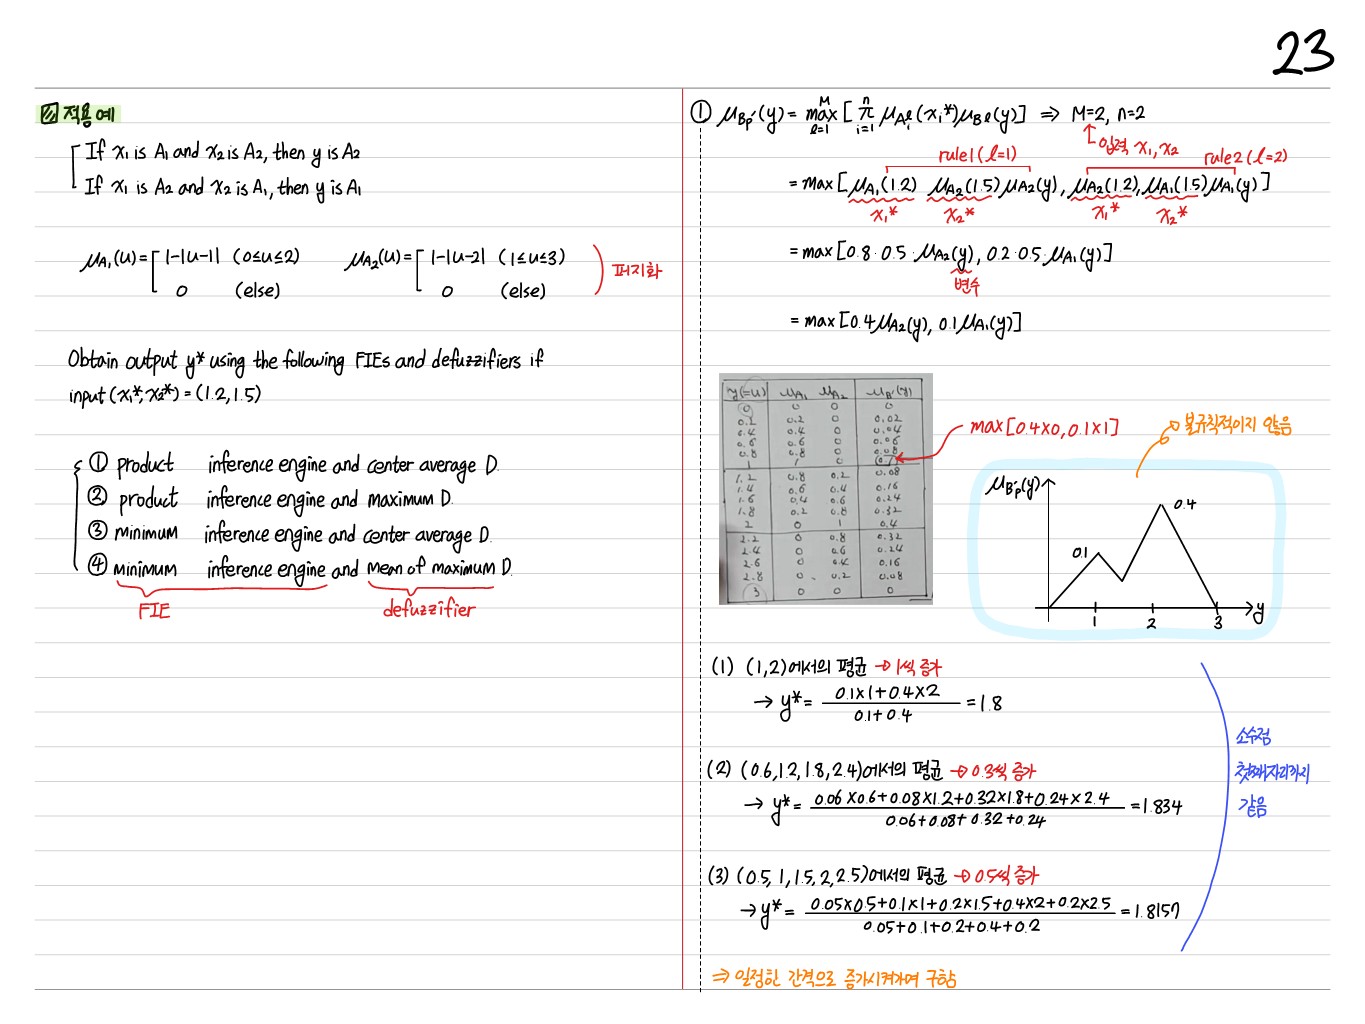 23
적용예
If x₁ is A₁ and x₂ is A₂, then y is A₂
If x₁ is A₂ and x₂ is A₁, then y is A₁
μA₁(u)= 1-|u-1| (0≤u≤2)
0 (else)
μA₂(u)= 1-|u-2| (1≤u≤3)
0 (else)
퍼지화
Obtain output y* using the following FIEs and defuzzifiers if
input (x₁*, x₂*) = (1.2, 1.5)
① product inference engine and center average D.
② product inference engine and maximum D.
③ minimum inference engine and center average D.
④ minimum inference engine and mean of maximum D.
FIE defuzzifier
① μBp'(y) = max [ π μAᵢˡ(xᵢ*)μBˡ(y)] ⇒ M=2, n=2
M
l=1
n
i=1
입력 x₁, x₂
rule1 (l=1) rule2 (l=2)
= max[μA₁(1.2) μA₂(1.5)μA₂(y), μA₂(1.2), μA₁(1.5)μA₁(y)]
x₁* x₂* x₁* x₂*
= max[0.8·0.5·μA₂(y), 0.2·0.5·μA₁(y)]
변수
= max[0.4μA₂(y), 0.1μA₁(y)]
y(=u) μA₁ μA₂ μB'(y)
0 0 0 0
0.2 0.2 0 0.02
0.4 0.4 0 0.04
0.6 0.6 0 0.06
0.8 0.8 0 0.08
1 1 0 0.1
1.2 0.8 0.2 0.08
1.4 0.6 0.4 0.16
1.6 0.4 0.6 0.24
1.8 0.2 0.8 0.32
2 0 1 0.4
2.2 0 0.8 0.32
2.4 0 0.6 0.24
2.6 0 0.4 0.16
2.8 0 0.2 0.08
3 0 0 0
max[0.4×0, 0.1×1]
불규칙적이지 않음
μBp'(y)
0.4
0.1
1 2 3 y
(1) (1,2)에서의 평균 → 1씩 증가
→ y* = 0.1×1+0.4×2 / 0.1+0.4 = 1.8
(2) (0.6,1.2,1.8,2.4)에서의 평균 → 0.3씩 증가
→ y* = 0.06×0.6+0.08×1.2+0.32×1.8+0.24×2.4 / 0.06+0.08+0.32+0.24 = 1.834
(3) (0.5, 1, 1.5, 2, 2.5)에서의 평균 → 0.5씩 증가
→ y* = 0.05×0.5+0.1×1+0.2×1.5+0.4×2+0.2×2.5 / 0.05+0.1+0.2+0.4+0.2 = 1.8157
소수점
첫째자리까지
같음
⇒ 일정한 간격으로 증가시켜가며 구함